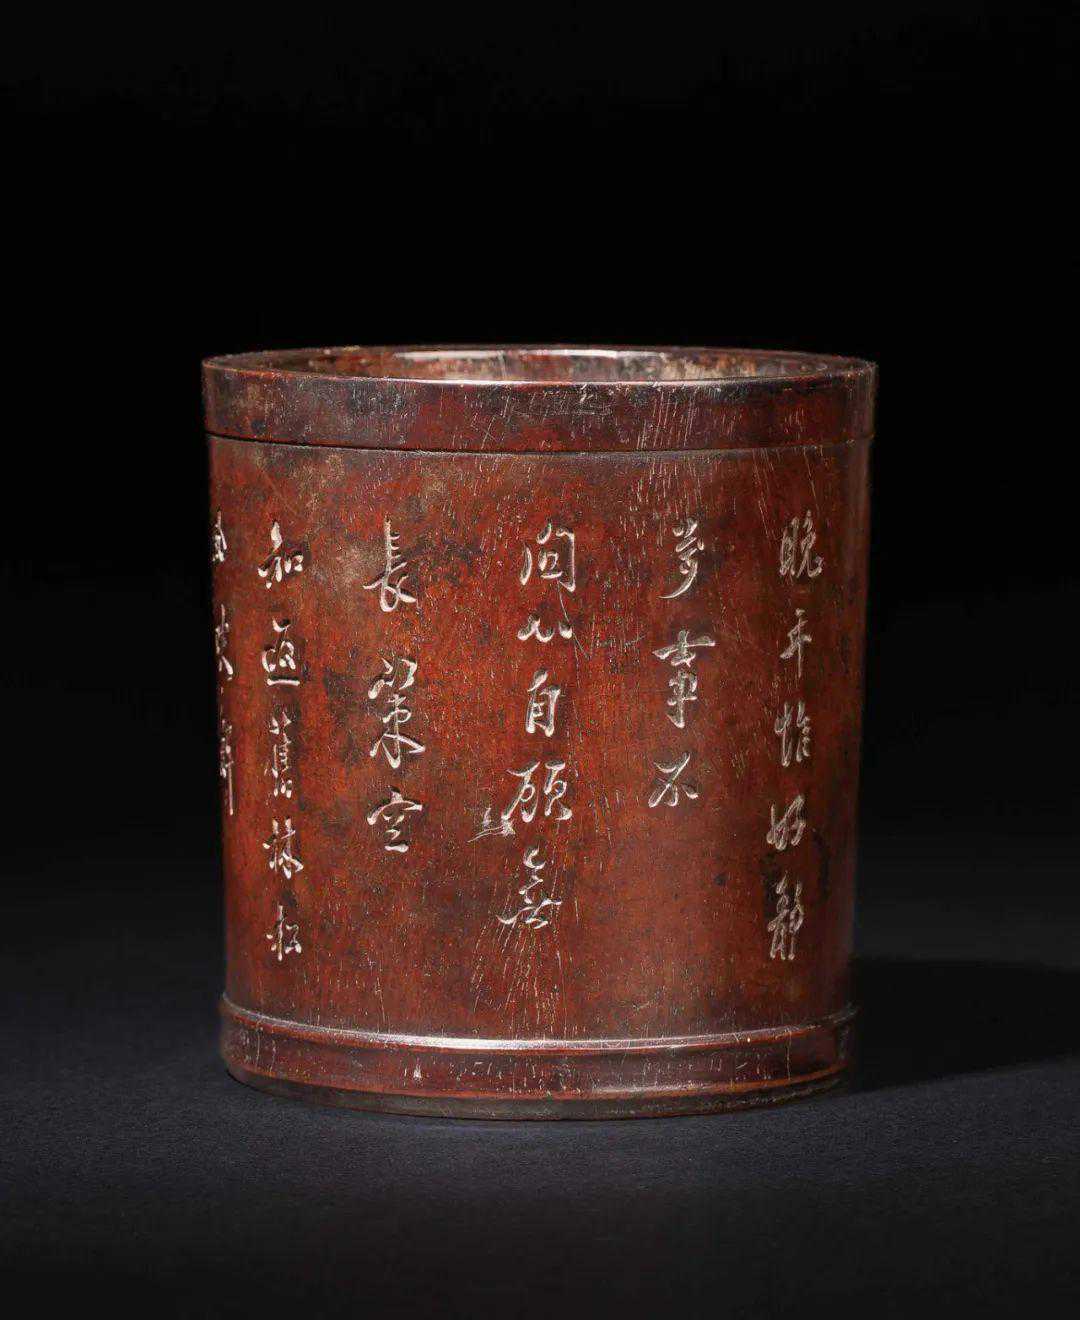 晚年惟好靜
萬事不
關心自顧無
長策空
知返舊林松